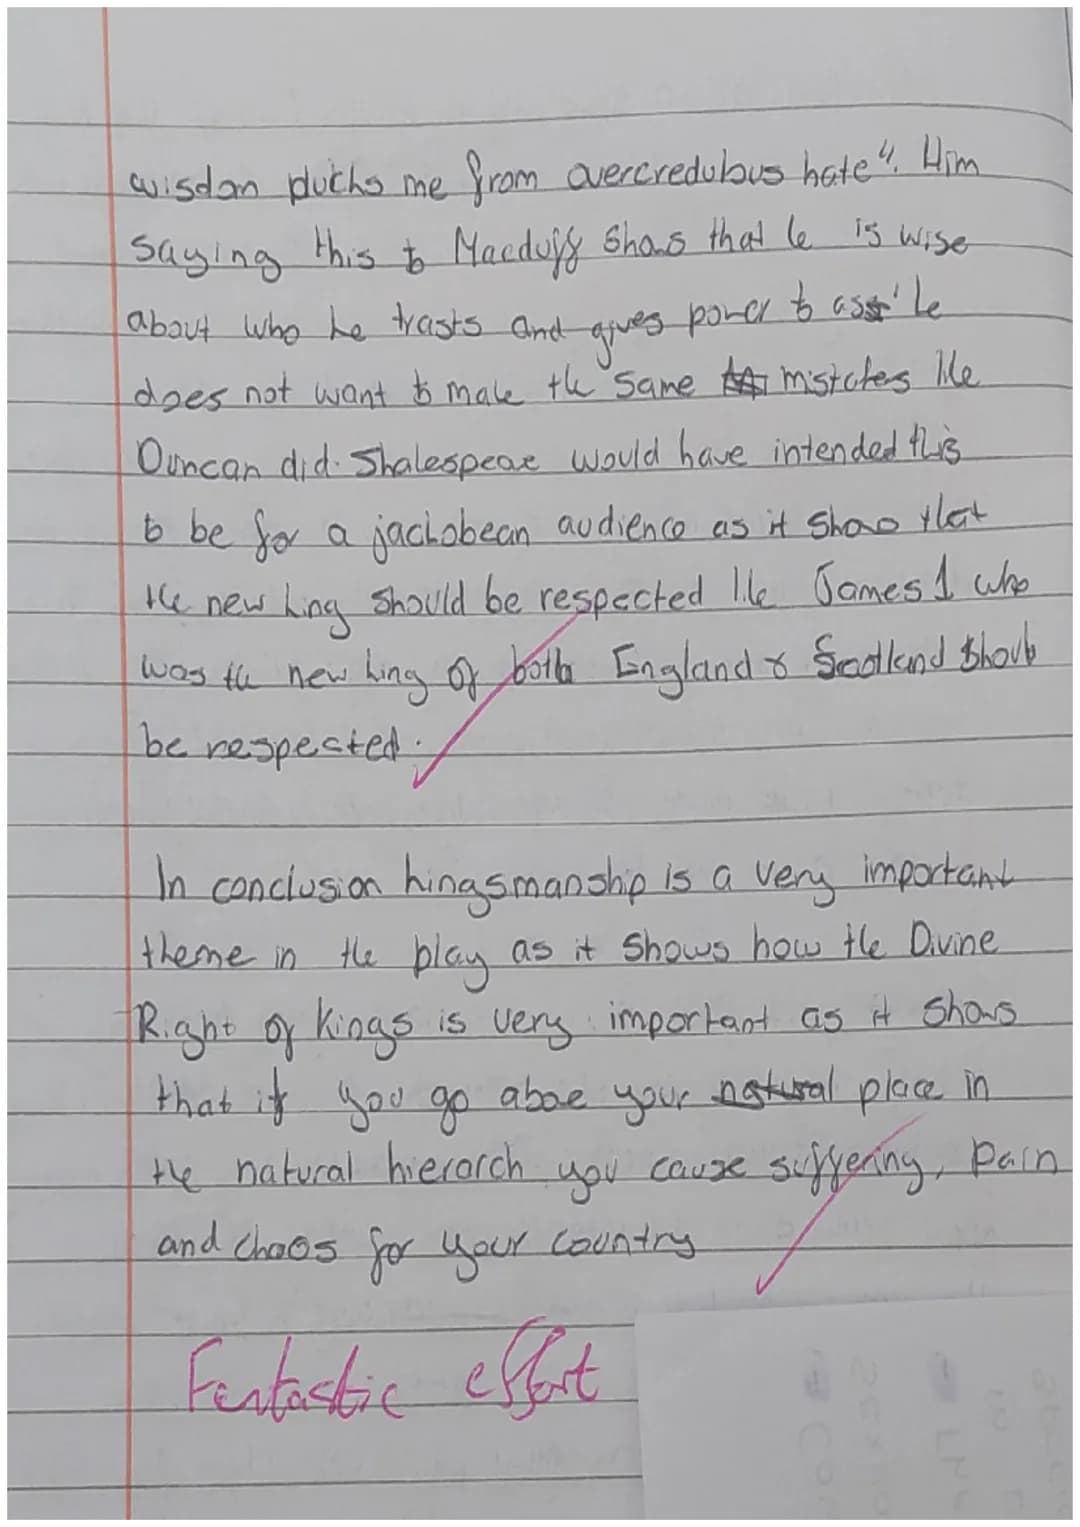 wisdom plucks me from overcredulous hate". Him
saying this to Macduff shows that he is wise
about who he trusts and gives power to as he
does not want to make the same mistakes like
Duncan did. Shakespeare would have intended this
to be for a jackobean audience as it shows that
the new king should be respected like James 1 who
was the new king of both England & Scotland should
be respected.
In conclusion kingsmanship is a very important
theme in the play as it shows how the Divine
Right of Kings is very important as it shows
that if you go above your natural place in
the natural hierarch you cause suffering, pain
and chaos for your country
Fantastic effort